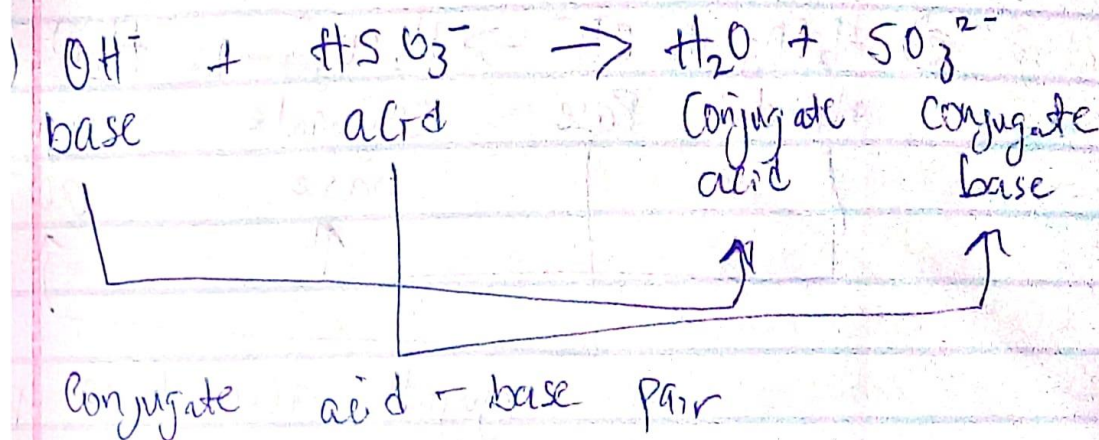 ) OH⁻ + HSO₃⁻ → H₂O + SO₃²⁻
base acid Conjugate acid Conjugate base
Conjugate acid - base pair